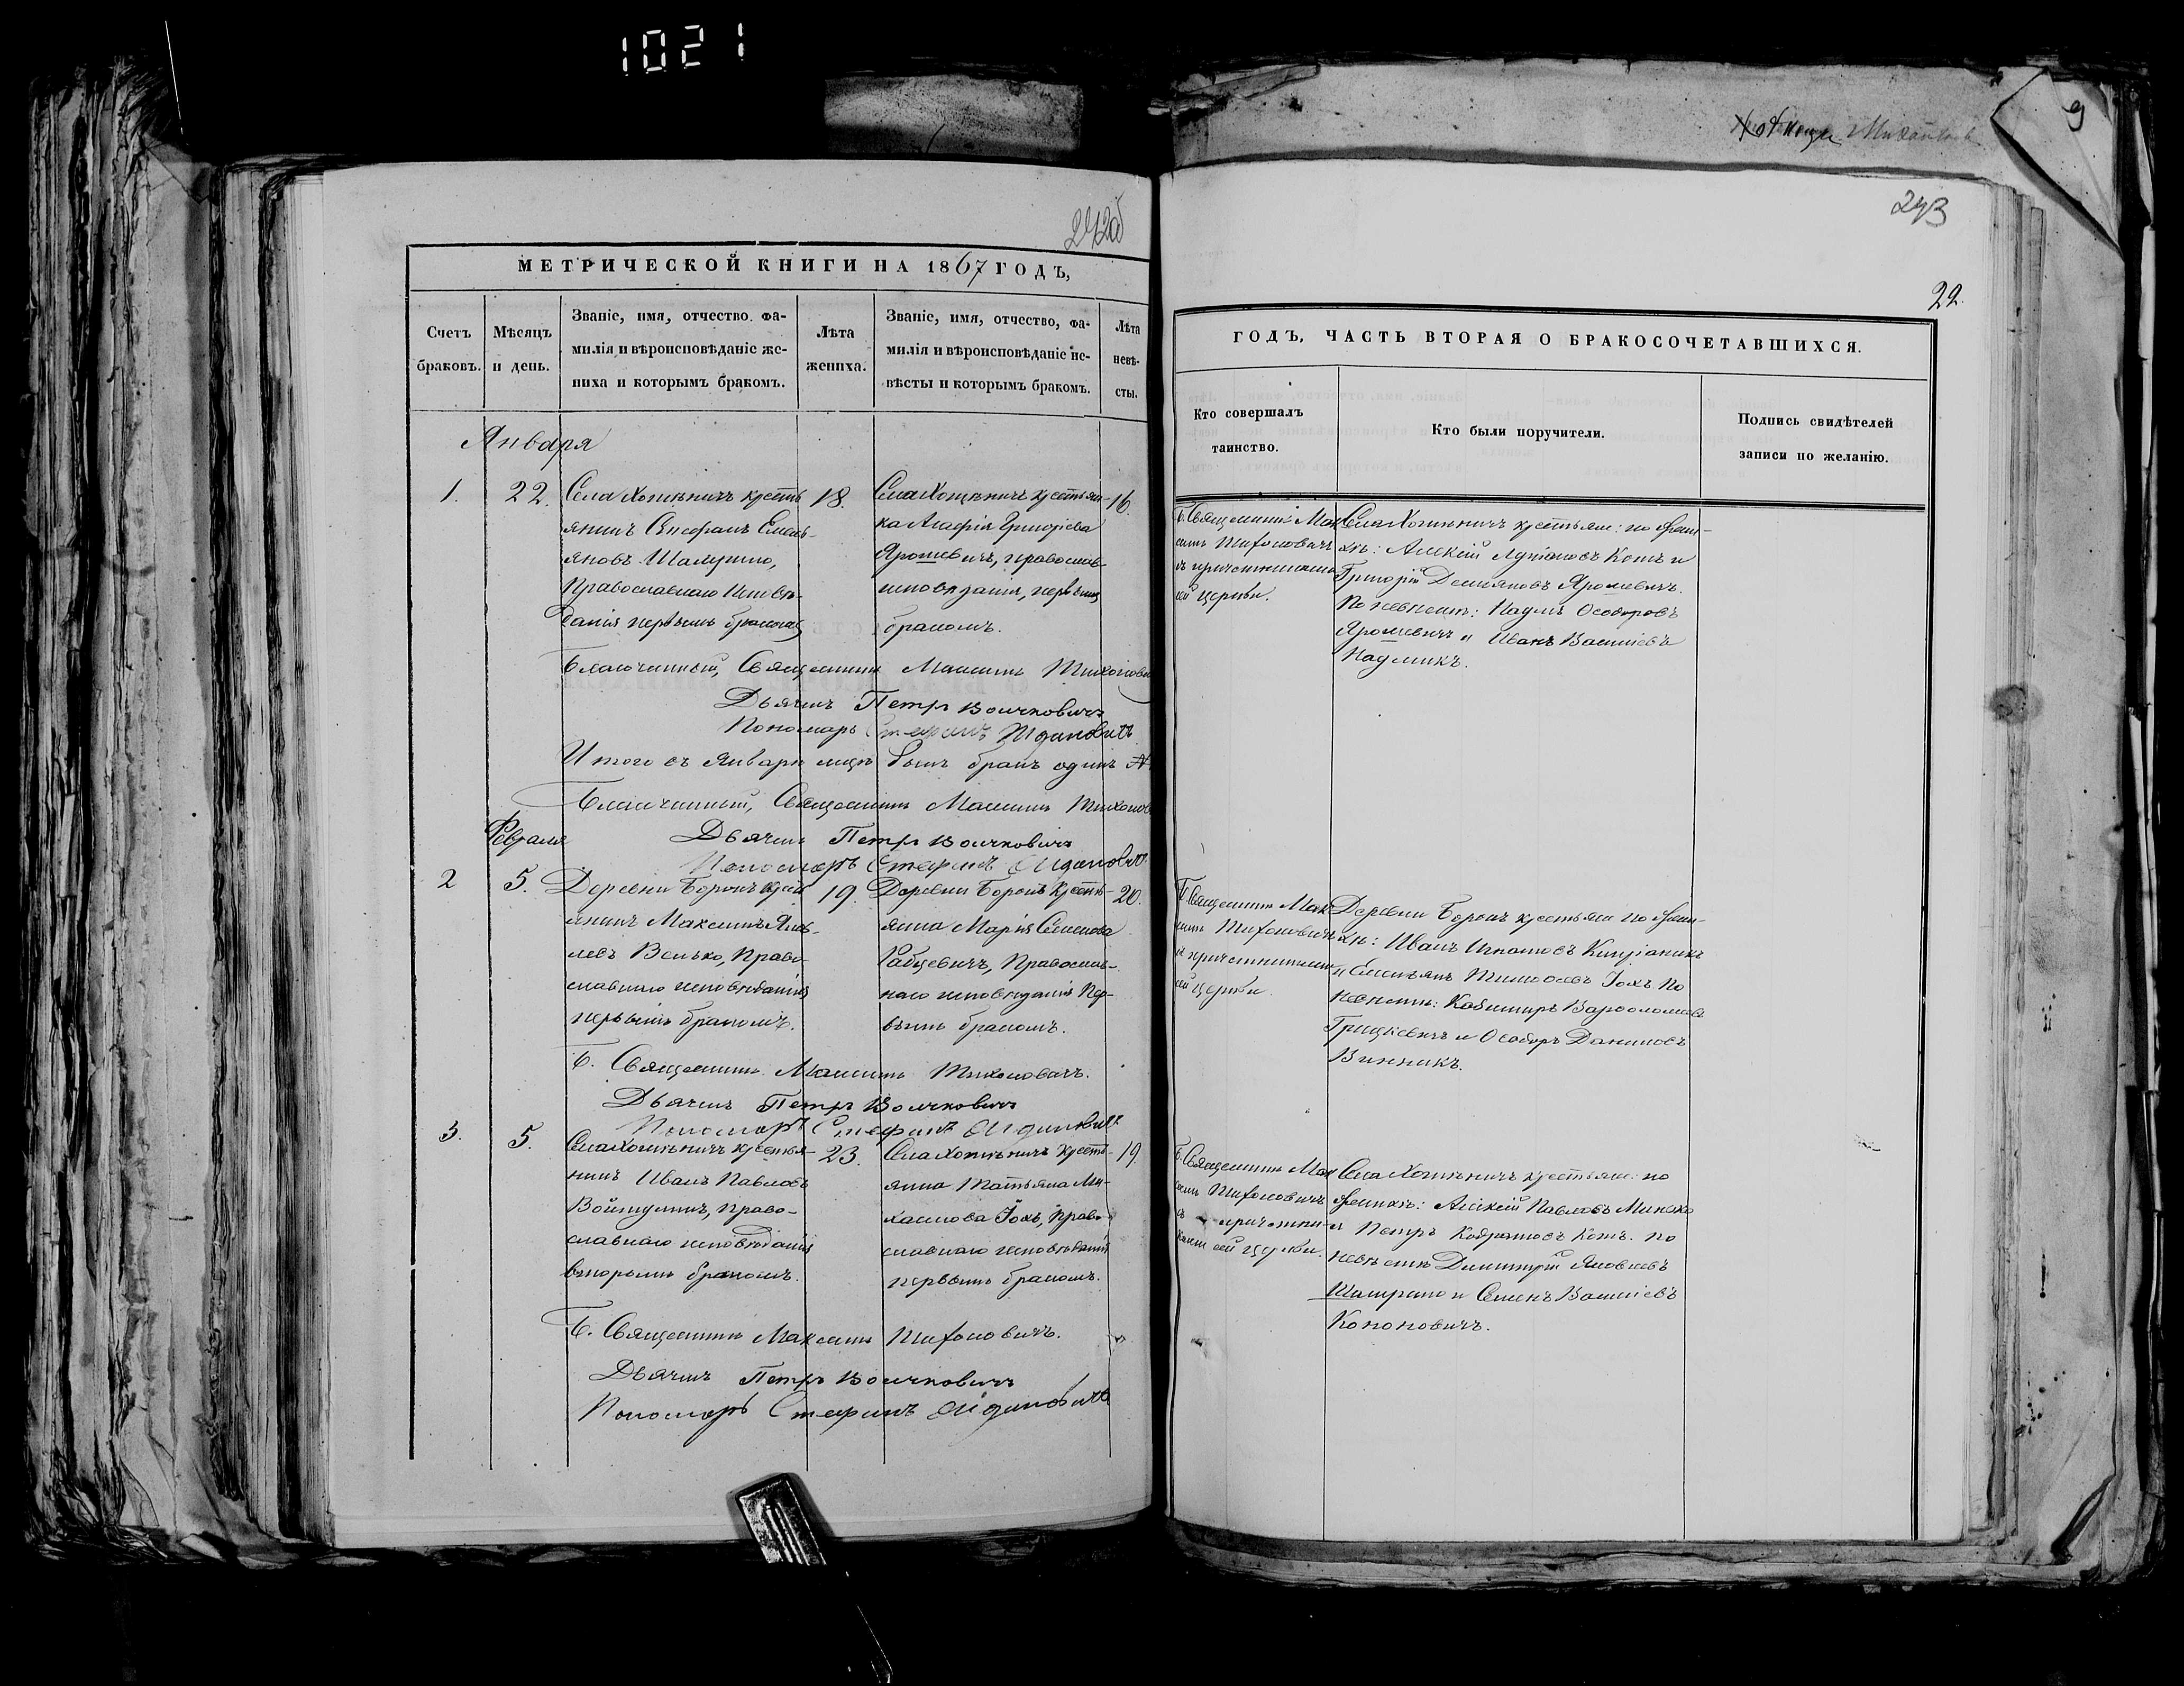 1021
9
242об
МЕТРИЧЕСКОЙ КНИГИ НА 1867 ГОДЪ,
Счетъ браковъ.
Мѣсяцъ и день.
Званіе, имя, отчество. фа-
милія и вѣроисповѣданіе же-
ниха и которымъ бракомъ.
Лѣта
жениха.
Званіе, имя, отчество, фа-
милія и вѣроисповѣданіе не-
вѣсты и которымъ бракомъ.
Лѣта
невѣ-
сты.
Января
1.
22.
Села Хотыничъ кресть
янинъ Емель-
яновъ
Православнаго Исповѣ-
данія первымъ бракомъ
18.
Села Хотыничъ крестьян-
ка Агафія Григоріева
Ярошевичъ, православ
исповѣданія, первымъ
бракомъ.
16.
Благочинный, Священникъ Максимъ Тихонови
Дьячекъ Петръ Волчковичъ
Пономарь Стефанъ Ждановичъ
Итого въ Январѣ мцѣ былъ бракъ одинъ
Благочинный, Священникъ Максимъ Тихонов
Дьячекъ Петръ Волчковичъ
Пономарь Стефанъ Ждановичъ
Февраля
2
5.
Деревни Боркъ крест
янинъ Максимъ Яков-
левъ Венько, Право-
славнаго исповѣданія
первымъ бракомъ.
19.
Деревни Боркъ Кресть-
янка Марія Семенова
Рабцевичъ, Православ-
наго исповѣданія Пер-
вымъ бракомъ.
20.
Б. Священникъ Максимъ Тихоновичъ.
Дьячекъ Петръ Волчковичъ
Пономарь Стефанъ Ждановичъ
3.
5.
Села Хотыничъ крестья-
нинъ Иванъ Павловъ
Право-
славнаго исповѣданія
вторымъ бракомъ.
23.
Села Хотыничъ Кресть-
янка Татьяна Ми-
хаилова Іохъ, Право-
славнаго исповѣданія
первымъ бракомъ.
19.
Б. Священникъ Максимъ Тихоновичъ.
Дьячекъ Петръ Волчковичъ
Пономарь Стефанъ Ждановичъ
243
22.
ГОДЪ, ЧАСТЬ ВТОРАЯ О БРАКОСОЧЕТАВШИХСЯ.
Кто совершалъ
таинство.
Кто были поручители.
Подпись свидѣтелей
записи по желанію.
Б. Священникъ Мак
симъ Тихоновичъ
съ причетниками
сей церкви.
Села Хотыничъ крестьяне: по жени-
хѣ: Алексій Котъ и
Григорій Демяновъ Ярошевичъ.
По невѣстѣ: Наумъ Ѳеодоровъ
Ярошевичъ и Иванъ Василіевъ
Наумикъ.
Б. Священникъ Мак
симъ Тихоновичъ
съ причетниками
сей церкви.
Деревни Боркъ крестьяне по жени-
хѣ: Иванъ Игнатовъ
и Емельянъ Тимоѳеевъ Іохъ По
невѣстѣ: Казимиръ Варѳоломеевъ
Грицкевичъ и Ѳеодоръ Даниловъ
Винникъ.
Б. Священникъ Мак
симъ Тихоновичъ
съ причетни-
ками сей церкви.
Села Хотыничъ крестьяне: по
женихѣ: Алексій Павловъ Минько
и Петръ Кодратовъ Котъ. по
невѣстѣ Димитрій Яковлевъ
и Семенъ Василіевъ
Кононовичъ.